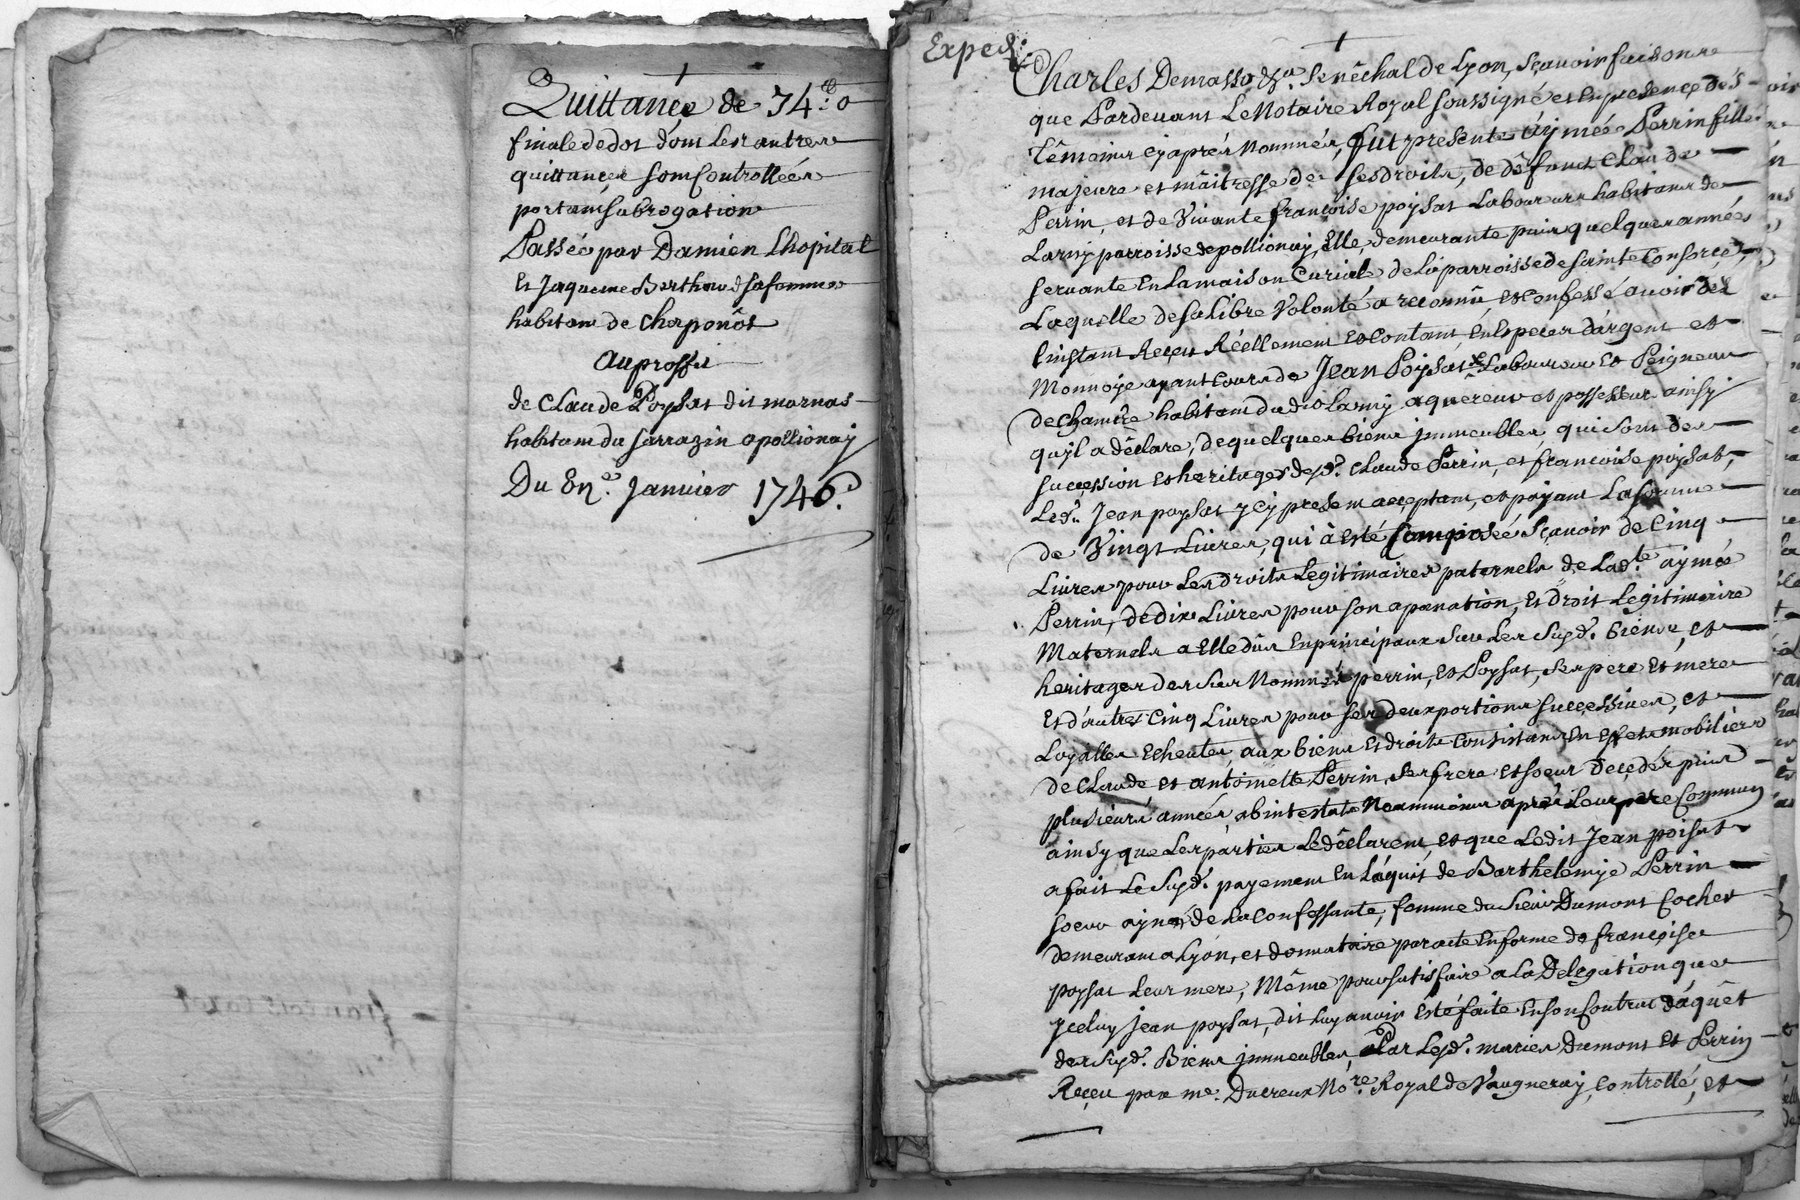 Quittance de 74.lt 0
finale de dot dont les autres
quittances sont Controllées
portant subrogation
Passée par Damien Lhopital
Et Jaqueme Berthaud sa femme
habitans de Choponôst
Au proffit
de Claude Poysat dit marnas
habitant du Sarrazin a pollionay
Du 8n.e Janvier 1746.
françois
Exped:
Charles Demasso &a. Senêchal de Lyon, Sçavoir faisons
que Pardevant Le Notaire Royal soussigné et en presence des
Têmoins cy après Nommés, fut presente Aÿmée Perrin fille
majeure et maitresse de ses droits, de défunt Claude
Perrin, et de Vivante françoise poysat Laboureurs habitans de
Larny parroisse de pollionay, Elle demeurante puis quelques années
servante en La maison Curiale de La parroisse de Sainte Consorce,
Laquelle de sa libre Volonté a reconnû et Confessé avoir dès
L'instant Reçeu Réellement et Contant, en Especes d'argent et
Monnoye ayant cours de Jean Poysat Laboureur et Peigneur
de chanvre habitant dudit Larny aquereur et possesseur ainsy
qu'jl a déclaré, de quelques biens jmmeubles, qui sont de
sucçession et heritages desd. Claude Perrin, et francoise poysat,
Led. Jean poysat ycy present acçeptant, et payant La somme
de Vingt Livres, qui à Esté Composée Sçavoir de Cinq
Livres pour Les droits Legitimaires paternels de Lad.te aymée
Perrin, de dix Livres pour son apanation, et droit Legitimaire
Maternels a Elle dûs En principaux sur Les susd. biens, et
heritages des siens Nommés perrin, et Poysat, ses pere et mere
Et d'autres Cinq Livres pour ses deux portions successives, et
Loyalles Echeutes, aux biens et droits Consistans En Effets mobiliers
de Claude et antoinette Perrin, ses frere et soeur decedés puis
plusieurs années abintestats Neanmoins après Leur pere Commun
ainsy que Les parties Le déclarent, et que Ledit Jean poisat
a fait Le susd. payement En L'aquit de Barthelemye Perrin
soeur aynée de La Confessante, femme du sieur Dumont Cocher
demeurant a Lyon, et donnataire par acte En forme de françoise
poysat Leur mere, Même pour satisfaire a La Delegation que
jceluy Jean poysat, dit Luy avoir Esté faite En son Contrat d'aquêt
des susd. Biens jmmeubles, Par Lesd. mariés Dumont et Perrin
Reçeu par me. Ducreux No.re Royal de Vaugneray, Controllé, et